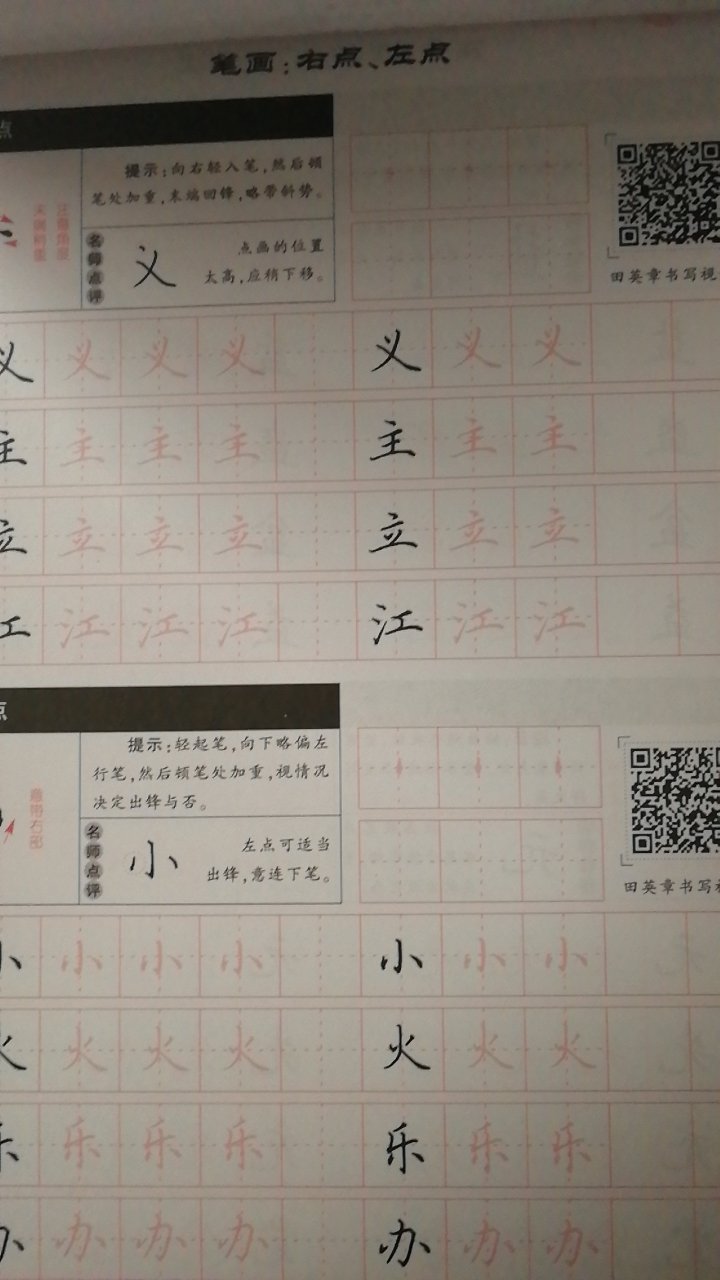 笔画：右点、左点
点
提示：向右轻入笔，然后顿
笔处加重，末端回锋，略带斜势。
名师点评
义
点画的位置
太高，应稍下移。
田英章书写视
义 义 义 义 义 义 义
主 主 主 主 主 主 主
立 立 立 立 立 立 立
江 江 江 江 江 江 江
点
提示：轻起笔，向下略偏左
行笔，然后顿笔处加重，视情况
决定出锋与否。
意带右部
名师点评
小
左点可适当
出锋，意连下笔。
田英章书写视
小 小 小 小 小 小 小
火 火 火 火 火 火 火
乐 乐 乐 乐 乐 乐 乐
办 办 办 办 办 办 办